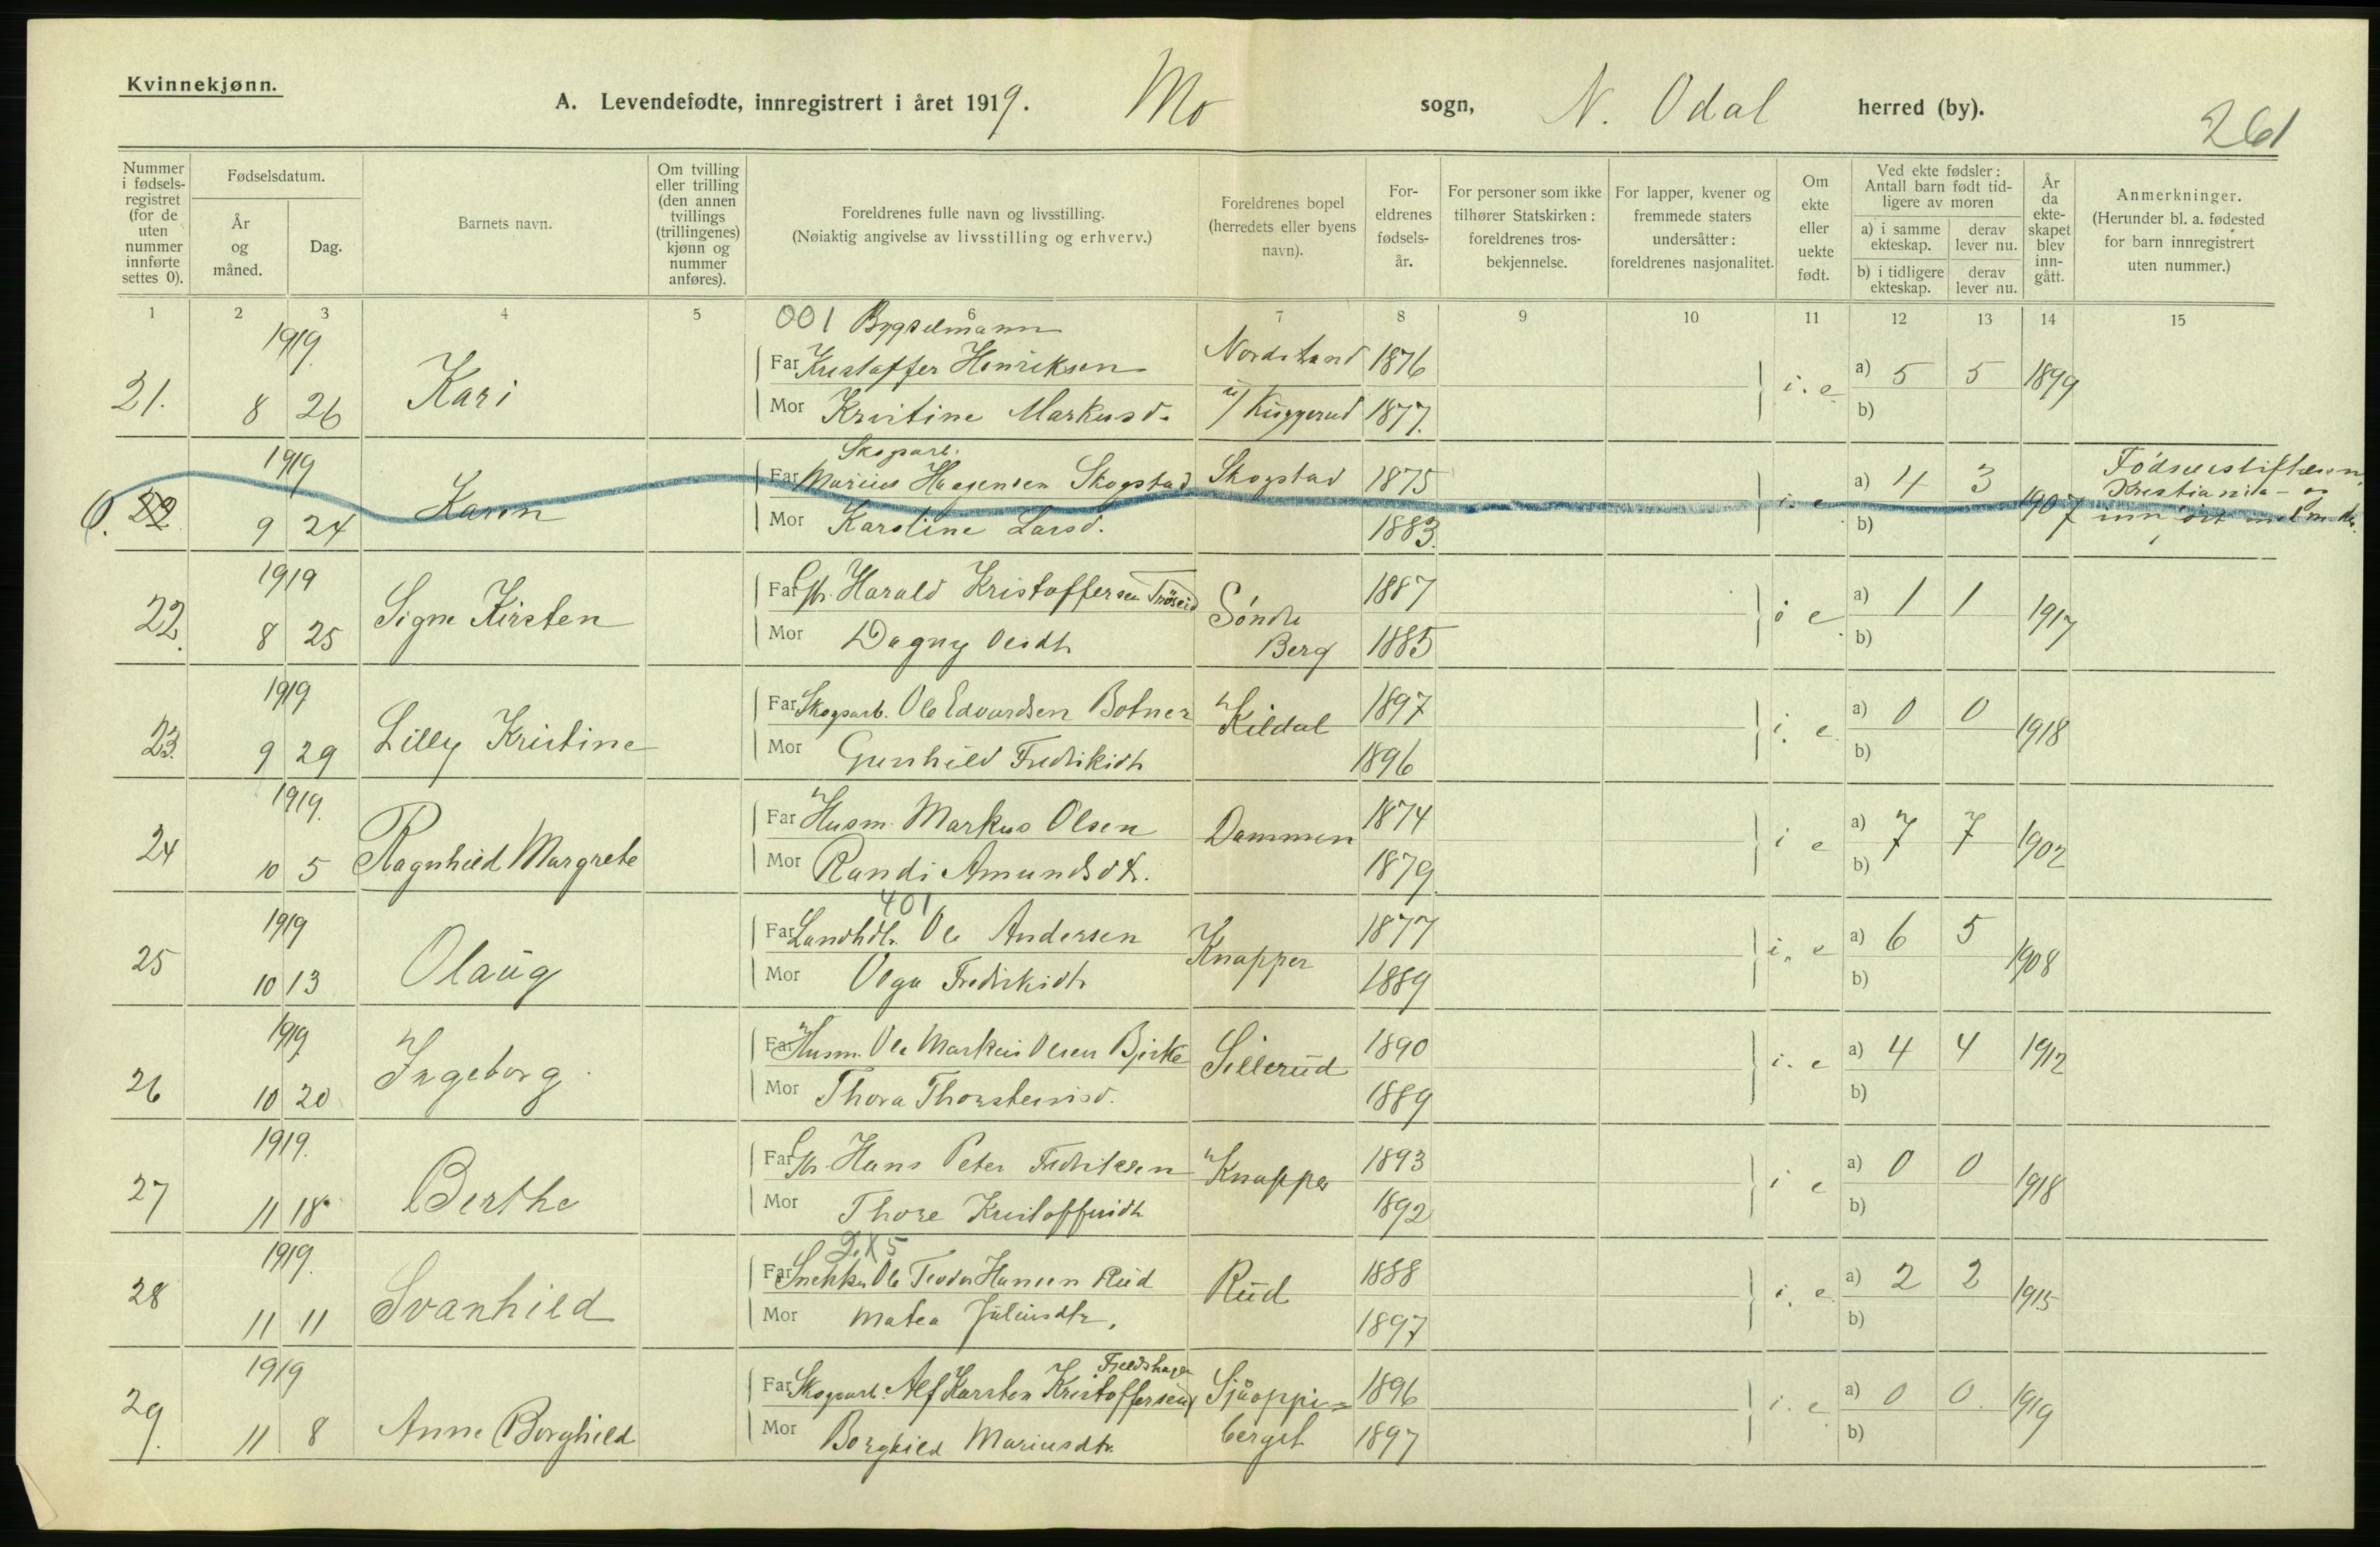 Kvinnekjønn.
A. Levendefødte, innregistrert i året 1919. Mo sogn, N. Odal herred (by).
261
Nummer i fødsels-registret (for de uten nummer innførte settes 0).
Fødselsdatum.
År og måned.
Dag.
Barnets navn.
Om tvilling eller trilling (den annen tvillings (trillingenes) kjønn og nummer anføres).
Foreldrenes fulle navn og livsstilling.
(Nøiaktig angivelse av livsstilling og erhverv.)
Foreldrenes bopel (herredets eller byens navn).
For-eldrenes fødsels-år.
For personer som ikke tilhører Statskirken: foreldrenes tros-bekjennelse.
For lapper, kvener og fremmede staters undersåtter: foreldrenes nasjonalitet.
Om ekte eller uekte født.
Ved ekte fødsler: Antall barn født tid-ligere av moren
a) i samme ekteskap.
derav lever nu.
b) i tidligere ekteskap.
derav lever nu.
År da ekte-skapet blev inn-gått.
Anmerkninger.
(Herunder bl. a. fødested for barn innregistrert uten nummer.)
1 2 3 4 5 6 7 8 9 10 11 12 13 14 15
001 Bygselmann
1919
Far Kristoffer Henriksen Nordstand 1876
21. 8 26 Kari i. e a) 5 5 1899
Mor Kristine Markusd. u/ Kuggerud 1877. b)
Skogarb.
1919
Far Marius Haagensen Skogstad Skogstad 1875 a) 4 3 Fødselsstiftelsen,
Kristiania - og
0. 22. 9 24 Karen i. e 1907
Mor Karoline Larsd. 1883. b)
1919
Far Gbr. Harald Kristoffersen Trøseid Søndre Berg 1887 a) 1 1
22. 8 25 Signe Kirsten i e 1917
Mor Dagny Olsdtr 1885 b)
1919
Far Skogsarb. Ole Edvardsen Botner Kildal 1897 a) 0 0
23. 9 29 Lilly Kristine i. e 1918
Mor Gunhild Fredriksdtr 1896 b)
1919.
Far Husm. Markus Olsen Dammen 1874 a) 7 7
24 10 5 Ragnhild Margrete i e 1902
Mor Randi Amundsdtr. 1879. b)
401
1919
Far Landhdl. Ole Andersen Knapper 1877 a) 6 5
25 10 13 Olaug i. e 1908
Mor Olga Fredriksdtr 1889 b)
1919
Far Husm. Ole Markus Olsen Bjirke Sillerud 1890 a) 4 4 1912
26 10 20 Ingeborg. i. e
Mor Thora Thorsteinsd. 1889 b)
1919.
Far Gbr. Hans Peter Fredriksen Knapper 1893 a) 0 0
27 11 18 Berthe i e 1918
Mor Thore Kristoffersdtr 1892 b)
1919.
Far Snekker Ole Teodor Hansen Rud Rud 1888 a) 2 2
28 11 11 Svanhild i. e 1915
Mor Matea Juliusdtr. 1897 b)
Fjeldshagen
1919
Far Skogsarb. Alf Karsten Kristoffersen Sjåoppi= 1896 a) 0 0.
29. 11 8 Anne Borghild i. e 1919
Mor Borghild Mariusdtr. berget 1897 b)